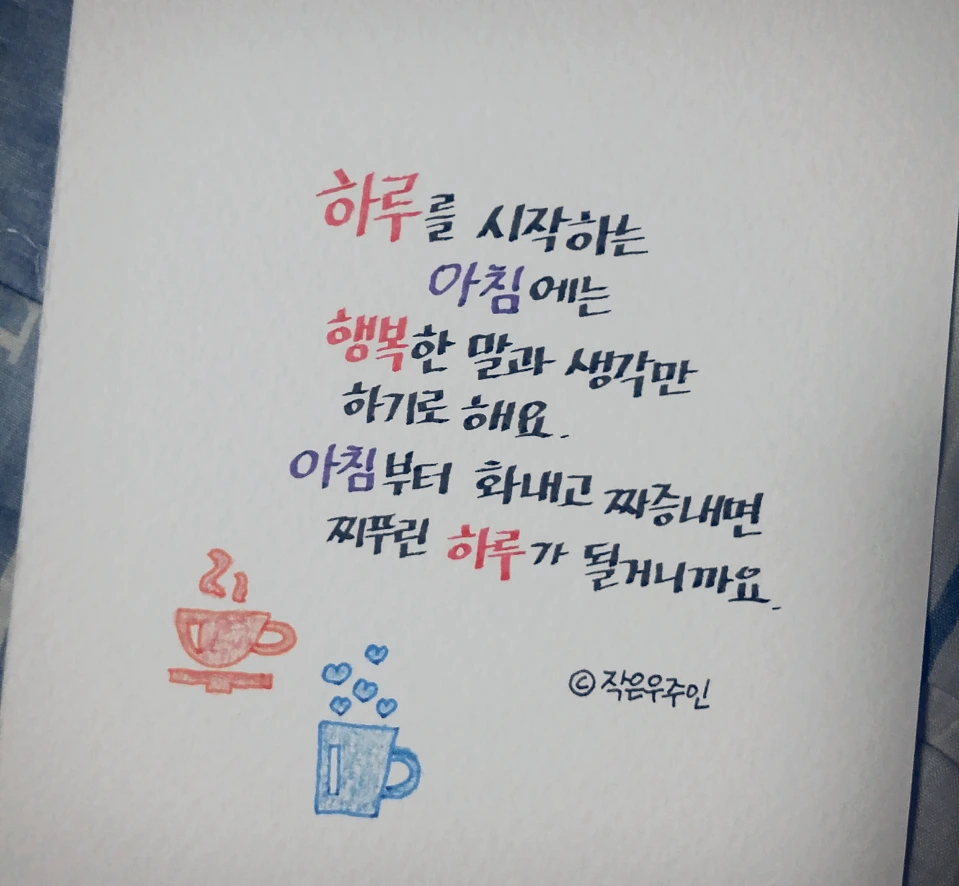 하루를 시작하는
아침에는
행복한 말과 생각만
하기로 해요.
아침부터 화내고 짜증내면
찌푸린 하루가 될거니까요.
©작은우주인